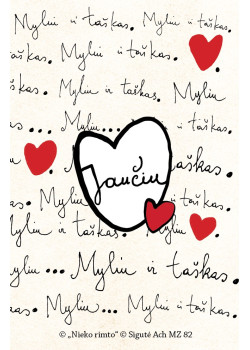 Myliu ir taškas.
Myliu ir taškas.
taškas. Myliu ir taškas.
Myliu ir taškas. Myliu
Myliu... Myliu...
Jaučiu
taškas.
Myliu ir taškas.
Myliu ... Myliu ir taškas.
Myliu... Myliu ir taškas.
© „Nieko rimto“ © Sigutė Ach MZ 82